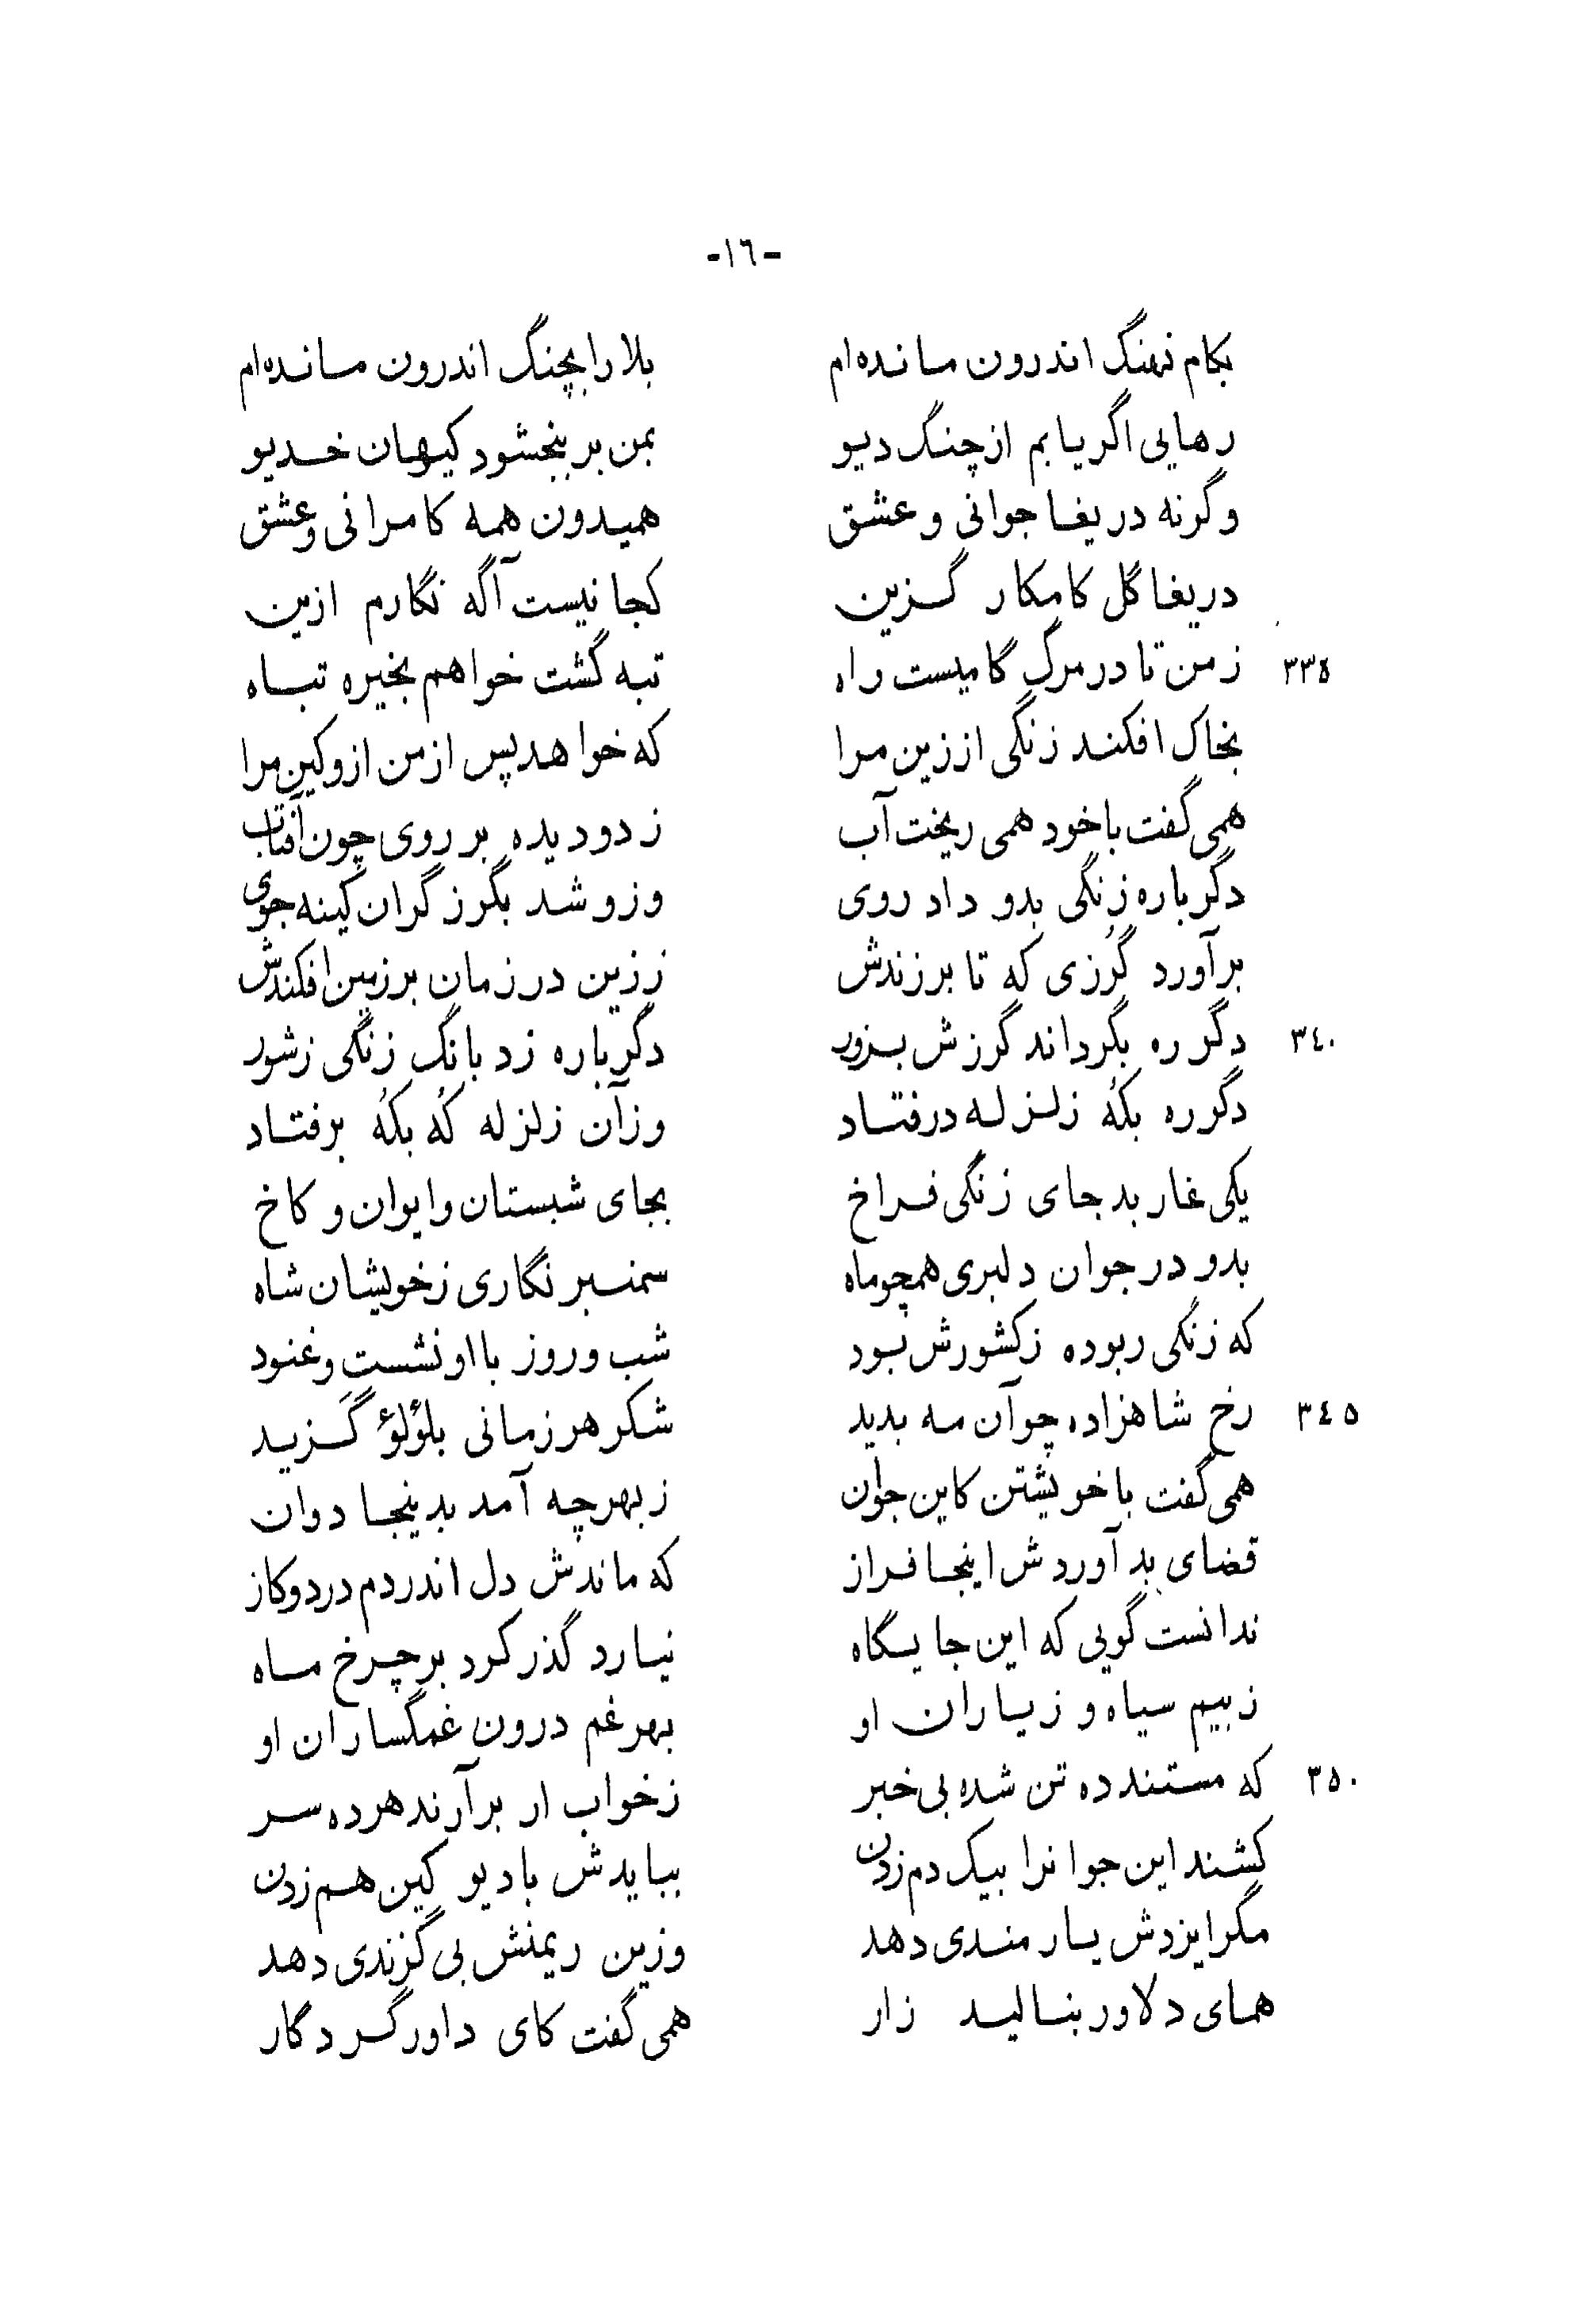 -١٦-
بكام نهنگ اندرون مانده‌ام بلا را بچنگ اندرون مانده‌ام
رهایی اگر یابم از چنگ دیو بمن بر ببخشود کیهان خدیو
وگرنه دریغا جوانی و عشق همیدون همه کامرانی و عشق
دریغا گل کامکار گزین کجا نیست آگه نگارم ازین
٣٣٥ زمن تا در مرگ گامیست راه تبه گشت خواهم بخیره تباه
بخاک افکند زنگی از زین مرا که خواهد پس از من ازو کین مرا
همی گفت با خود همی ریخت آب ز دو دیده بر روی چون آفتاب
دگرباره زنگی بدو داد روی وزو شد بگرز گران کینه جوی
برآورد گرزی که تا برزندش ززین در زمان بر زمین افکندش
٣٤٠ دگرره بگرداند گرزش بزور دگرباره زد بانگ زنگی زشور
دگرره بکُه زلزله درفتاد وزآن زلزله کُه بکُه برفتاد
یکی غار بد جای زنگی فراخ بجای شبستان و ایوان و کاخ
بدو در جوان دلبری همچو ماه سمنبر نگاری زخویشان شاه
که زنگی ربوده زکشورش بود شب و روز با او نشست و غنود
٣٤٥ رخ شاهزاده چو آن مه بدید شکر هر زمانی بلؤلؤ گَزید
همی گفت با خویشتن کاین جوان ز بهر چه آمد بدینجا دوان
قضای بد آوردش اینجا فراز که ماندش دل اندر دم درد و کاز
ندانست گویی که این جایگاه نیارد گذر کرد بر چرخ ماه
زبیم سیاه و زیاران او بهر غم درون غمگساران او
٣٥٠ که مستند ده تن شده بی خبر زخواب ار برآرند هرده سر
کشند این جوانرا بیک دم زدن بباید‌ش با دیو کین هم زدن
مگر ایزدش یارمندی دهد وزین ریمنش بی گزندی دهد
همای دلاور بنالید زار همی گفت کای داور گردگار